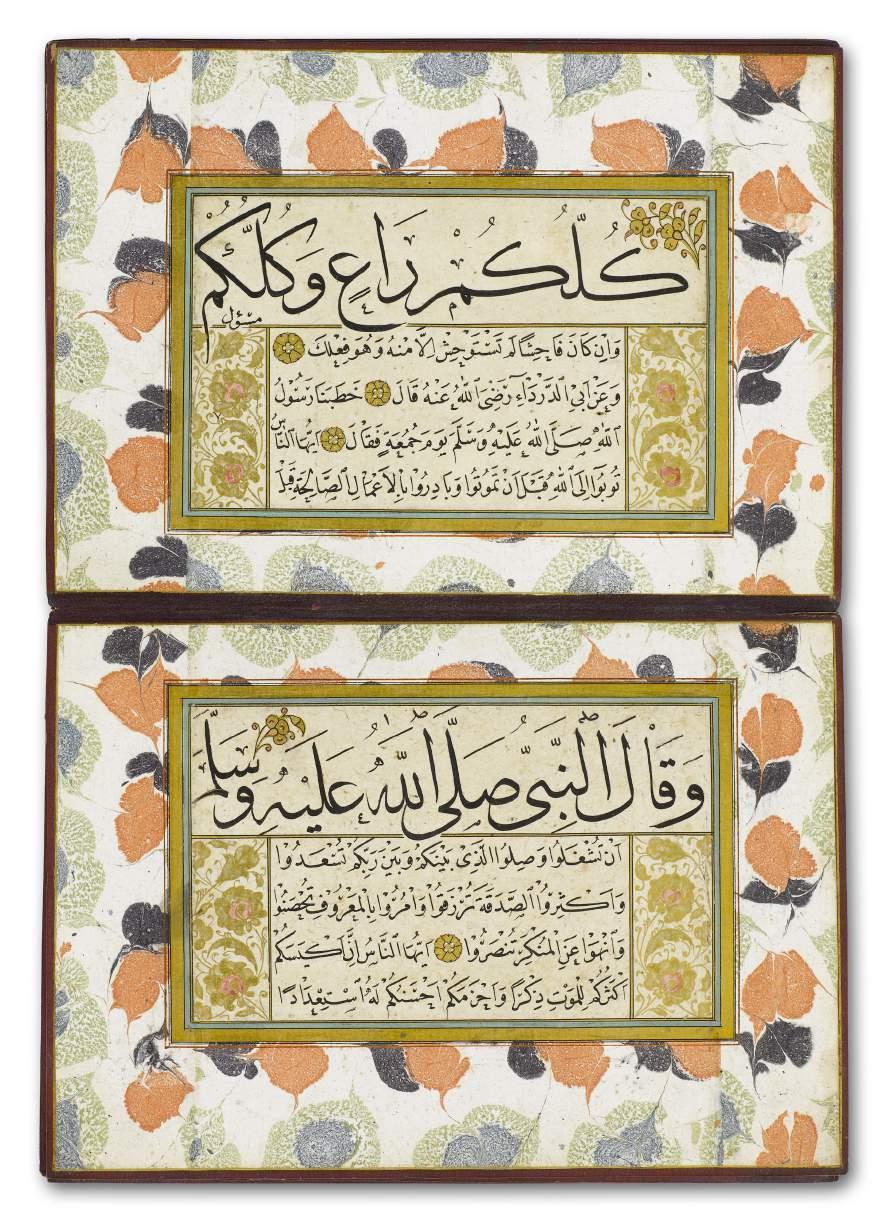 كُلُّكُمْ رَاعٍ وَكُلُّكُمْ
مسؤل
وَاِنْ كَانَ فَاحِشًا لَمْ تَسْتَوْحِشْ اِلَّا مِنْهُ وَهُوَ فِعْلُكَ
وَعَنْ اَبِي الدَّرْدَاءِ رَضِيَ اللّٰهُ عَنْهُ قَالَ خَطَبَنَا رَسُوْلُ
اللّٰهِ صَلَّى اللّٰهُ عَلَيْهِ وَسَلَّمَ يَوْمَ جُمُعَةٍ فَقَالَ اَيُّهَا النَّاسُ
تُوبُوا اِلَى اللّٰهِ قَبْلَ اَنْ تَمُوْتُوا وَبَادِرُوا بِالْاَعْمَالِ الصَّالِحَةِ قَبْلَ
وَقَالَ النَّبِيُّ صَلَّى اللّٰهُ عَلَيْهِ وَسَلَّمَ
اَنْ تُشْغَلُوا وَصِلُوا الَّذِي بَيْنَكُمْ وَبَيْنَ رَبِّكُمْ تَسْعَدُوا
وَاَكْثِرُوا الصَّدَقَةَ تُرْزَقُوا وَامُرُوا بِالْمَعْرُوْفِ تُحْصَنُوا
وَانْهَوْا عَنِ الْمُنْكَرِ تُنْصَرُوا اَيُّهَا النَّاسُ اِنَّ اَكْيَسَكُمْ
اَكْثَرُكُمْ لِلْمَوْتِ ذِكْرًا وَاَحْزَمَكُمْ اَحْسَنُكُمْ لَهُ اسْتِعْدَادًا